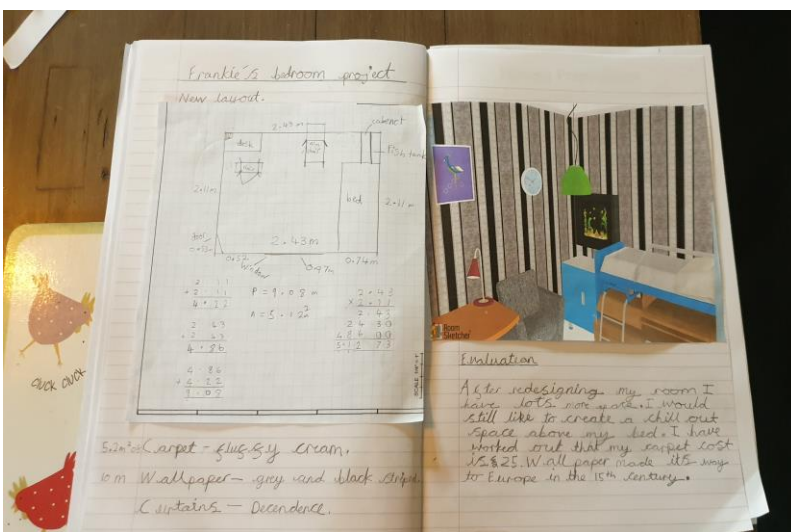 Frankie's bedroom project
New layout.
2.43m
cabinet
desk
Fish tank
bed
2.11m
2.11m
2.43m
0.52
0.97m
0.74m
2.11
+ 2.11
4.22
P = 9.08m
2.43
+ 2.43
4.86
4.86
+ 4.22
9.08
2.43
x 2.11
2.43
24.30
486.00
5.12 73
Carpet - fluffy cream.
10 m Wallpaper - grey and black striped
Curtains - Decendence.
CLUCK CLUCK
Room
Sketcher
Evaluation
After redesigning my room I
have lots more space. I would
still like to create a chill out
space above my bed. I have
worked out that my carpet cost
is $25. Wall paper made its way
to Europe in the 15th century.